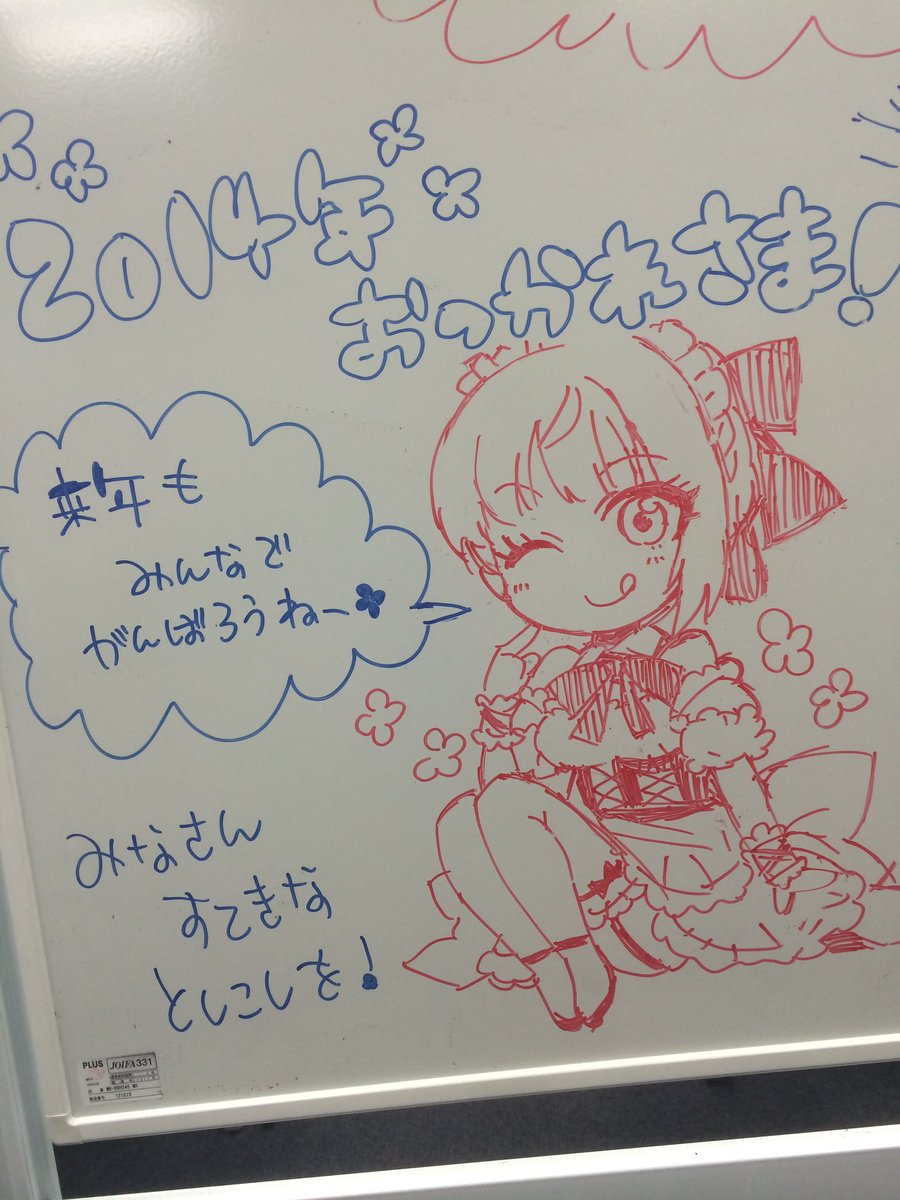 2014年
おつかれさま!
来年も
みんなで
がんばろうねー
みなさん
すてきな
としこしを!
PLUS JOIFA331